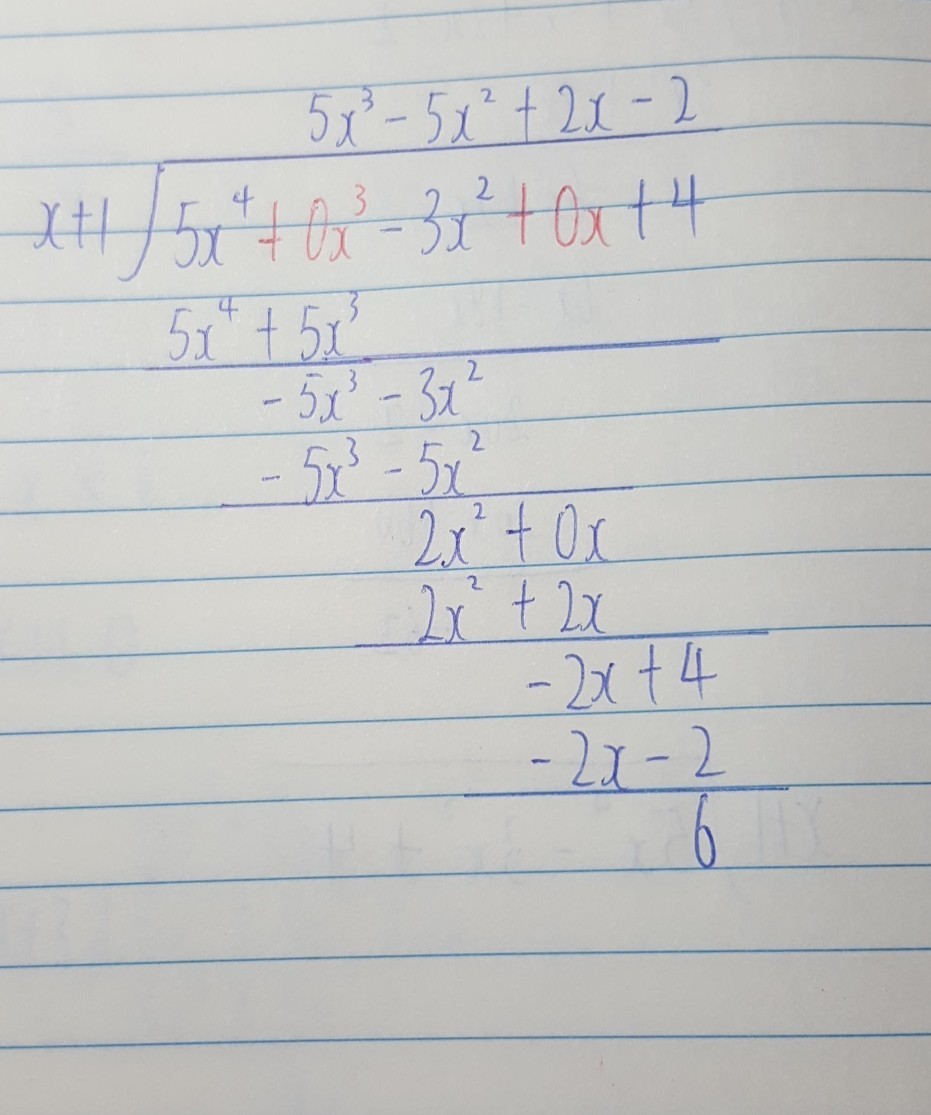 5x³ - 5x² + 2x - 2
x+1 5x⁴ + 0x³ - 3x² + 0x + 4
5x⁴ + 5x³
- 5x³ - 3x²
- 5x³ - 5x²
2x² + 0x
2x² + 2x
- 2x + 4
- 2x - 2
6